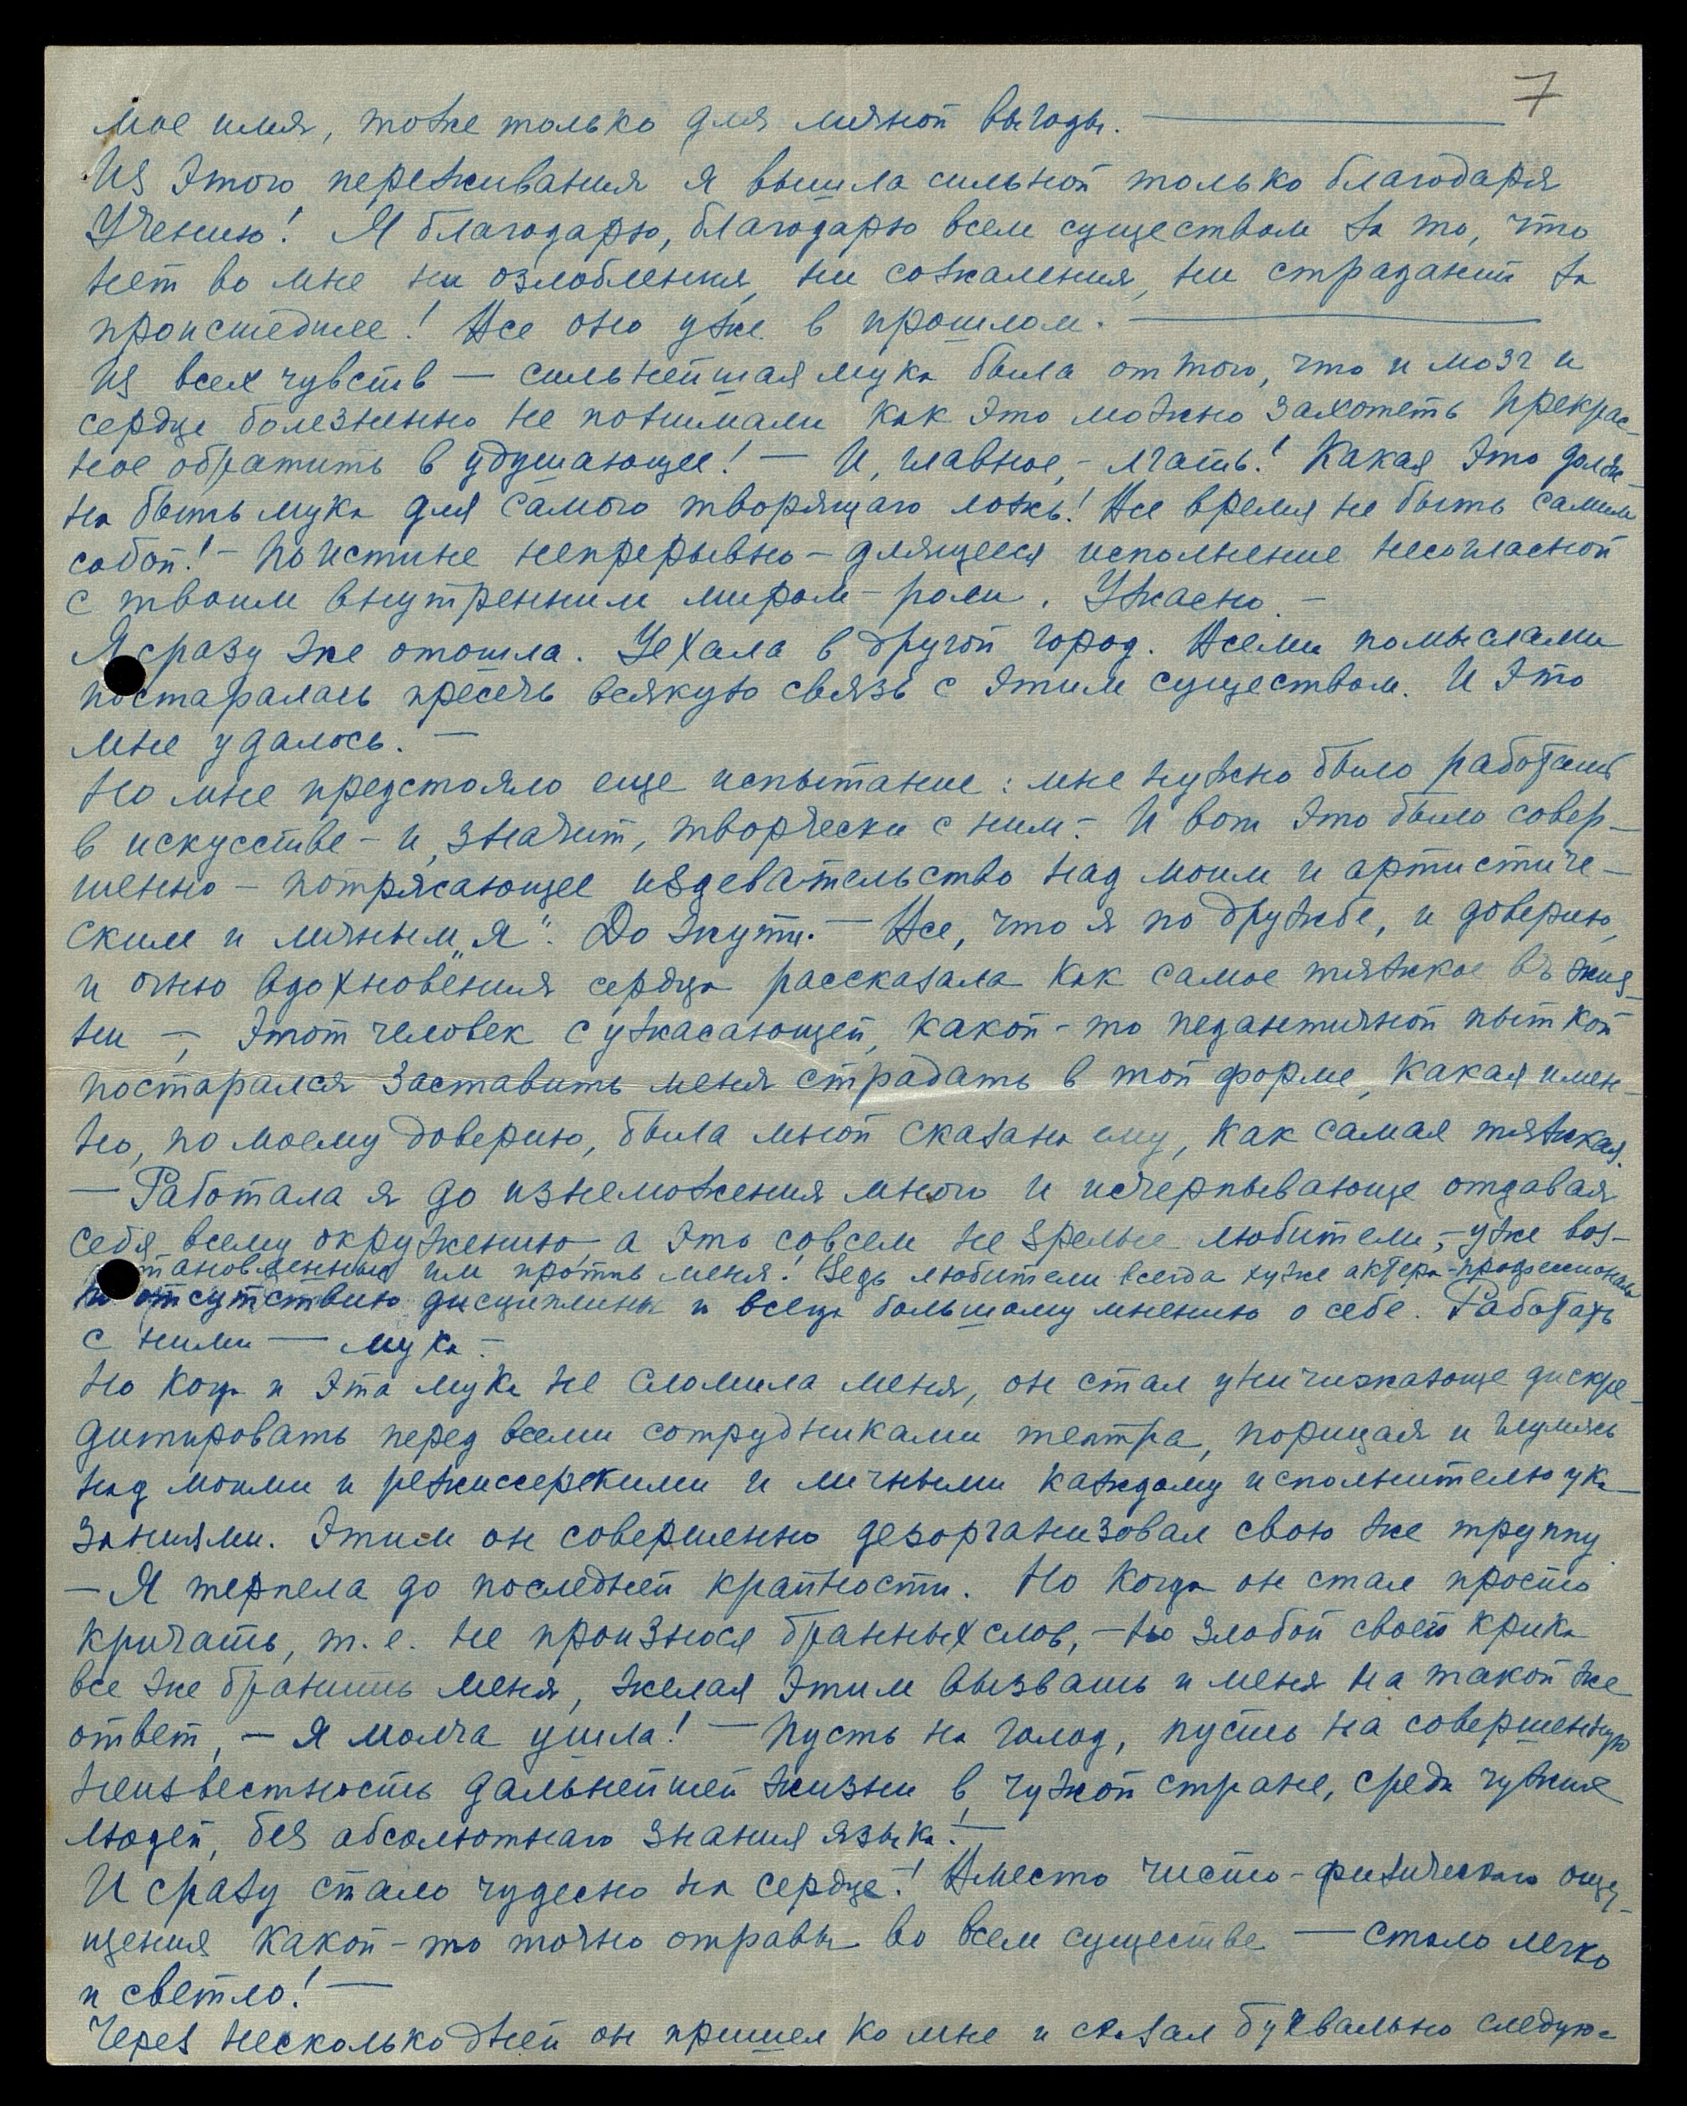 7
мое имя, тоже только для личной выгоды. —
Из этого переживания я вышла сильной только благодаря
Учению! Я благодарю, благодарю всем существом за то, что
нет во мне ни озлобления, ни сожаления, ни страданий за
происшедшее! Все оно уже в прошлом. —
Из всех чувств — сильнейшая мука была оттого, что и мозг и
сердце болезненно не понимали как это можно захотеть прекрас-
ное обратить в удушающее! — И, главное, - лгать! Какая это долж-
на быть мука для самого творящаго ложь! Все время не быть самим
собой! - Поистине непрерывно - длящееся исполнение несогласной
с твоим внутренним миром - роли. Ужасно. -
Я сразу же отошла. Уехала в другой город. Всеми помыслами
постаралась пресечь всякую связь с этим существом. И это
мне удалось. —
Но мне предстояло еще испытание: мне нужно было работать
в искусстве - и, значит, творчески с ним. - И вот это было совер-
шенно - потрясающее издевательство над моим и артистиче-
ским и личным „я". До жути. — Все, что я по дружбе, и доверию,
и огню вдохновения сердца рассказала как самое тяжкое въ жиз-
ни -, этот человек с ужасающей, какой-то педантичной пыткой
постарался заставить меня страдать в той форме, какая имен-
но, по моему доверию, была мной сказана ему, как самая тяжкая.
— Работала я до изнеможения много и исчерпывающе отдавая
себя всему окружению, а это совсем не зрелые любители, - уже вос-
становленные им против меня! Ведь любители всегда хуже актера-профессионала
по отсутствию дисциплины и всегда большому мнению о себе. Работать
с ними — мука. -
Но когда и эта мука не сломила меня, он стал уничижающе дискре-
дитировать перед всеми сотрудниками театра, порицая и глумясь
над моими и режиссерскими и личными каждому исполнителю ука-
заниями. Этим он совершенно дезорганизовал свою же труппу
- Я терпела до последней крайности. Но когда он стал просто
кричать, т. е. не произнося бранных слов, - но злобой своего крика
все же бранить меня, желая этим вызвать и меня на такой же
ответ, - я молча ушла! — Пусть на голод, пусть на совершенную
неизвестность дальнейшей жизни в чужой стране, среди чужих
людей, без абсолютнаго знания языка! —
И сразу стало чудесно на сердце! - Вместо чисто-физического ощу-
щения какой-то точно отравы во всем существе — стало легко
и светло! —
Через несколько дней он пришел ко мне и сказал буквально следую-